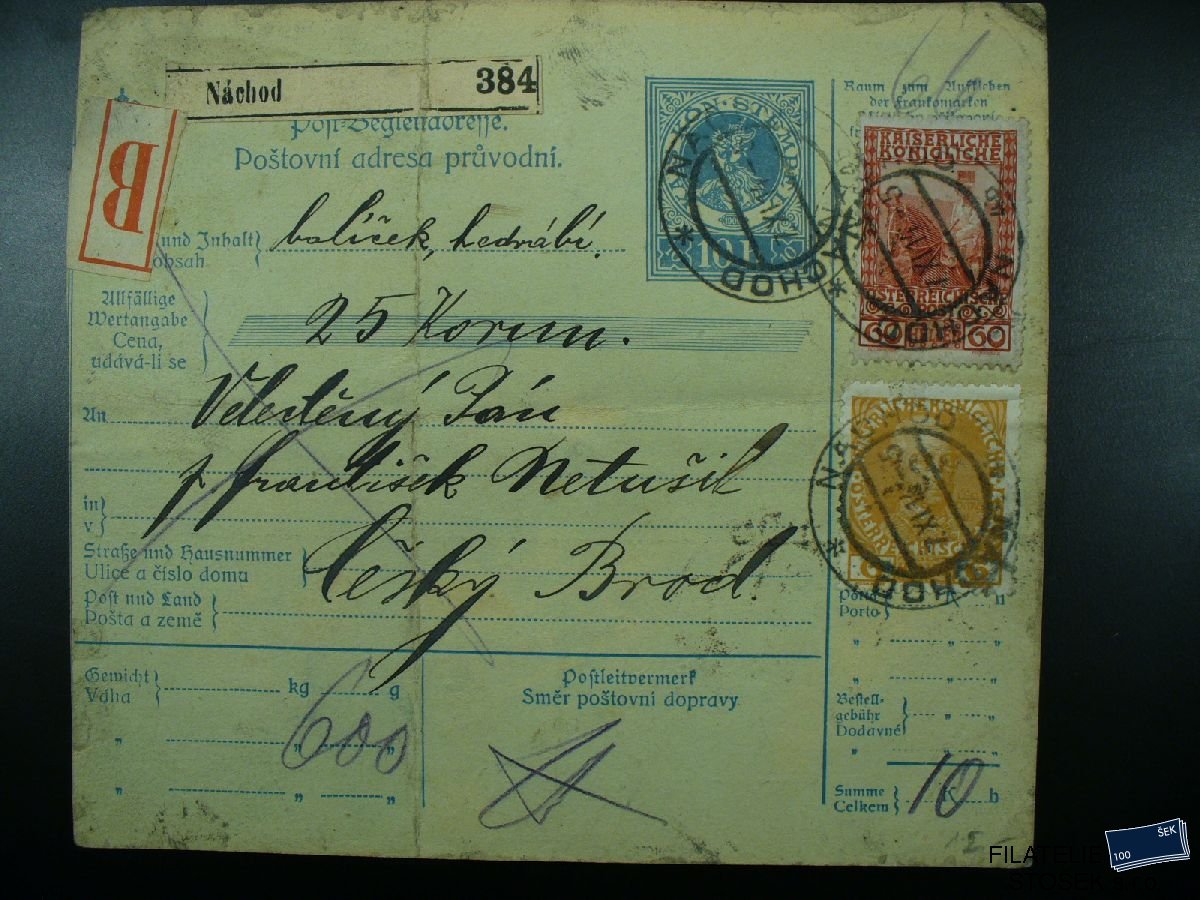 Náchod 384
B
Post-Begleitadresse.
Poštovní adresa průvodní.
Raum zum Aufkleben
der Frankomarken
KON·STEMPEL
10 h
KAISERLICHE
KÖNIGLICHE
ÖSTERREICHISCHE
POST
60 HELLER 60
NÁCHOD
NACHOD
NÁCHOD
NACHOD
NÁCHOD
NACHOD
6
und Inhalt
obsah
balíček, hedvábí.
Allfällige
Wertangabe
Cena,
udává-li se
25 Korun.
An
Veleděný Ján
p. František Netušil
in
v
Straße und Hausnummer
Ulice a číslo domu
Český Brod.
Post und Land
Pošta a země
Porto
h
Gewicht
Váha
kg
g
600
Postleitvermerk
Směr poštovní dopravy
Bestell-
gebühr
Dodavné
Summe
Celkem
10
K h
FILATELIE
100 ŠEK